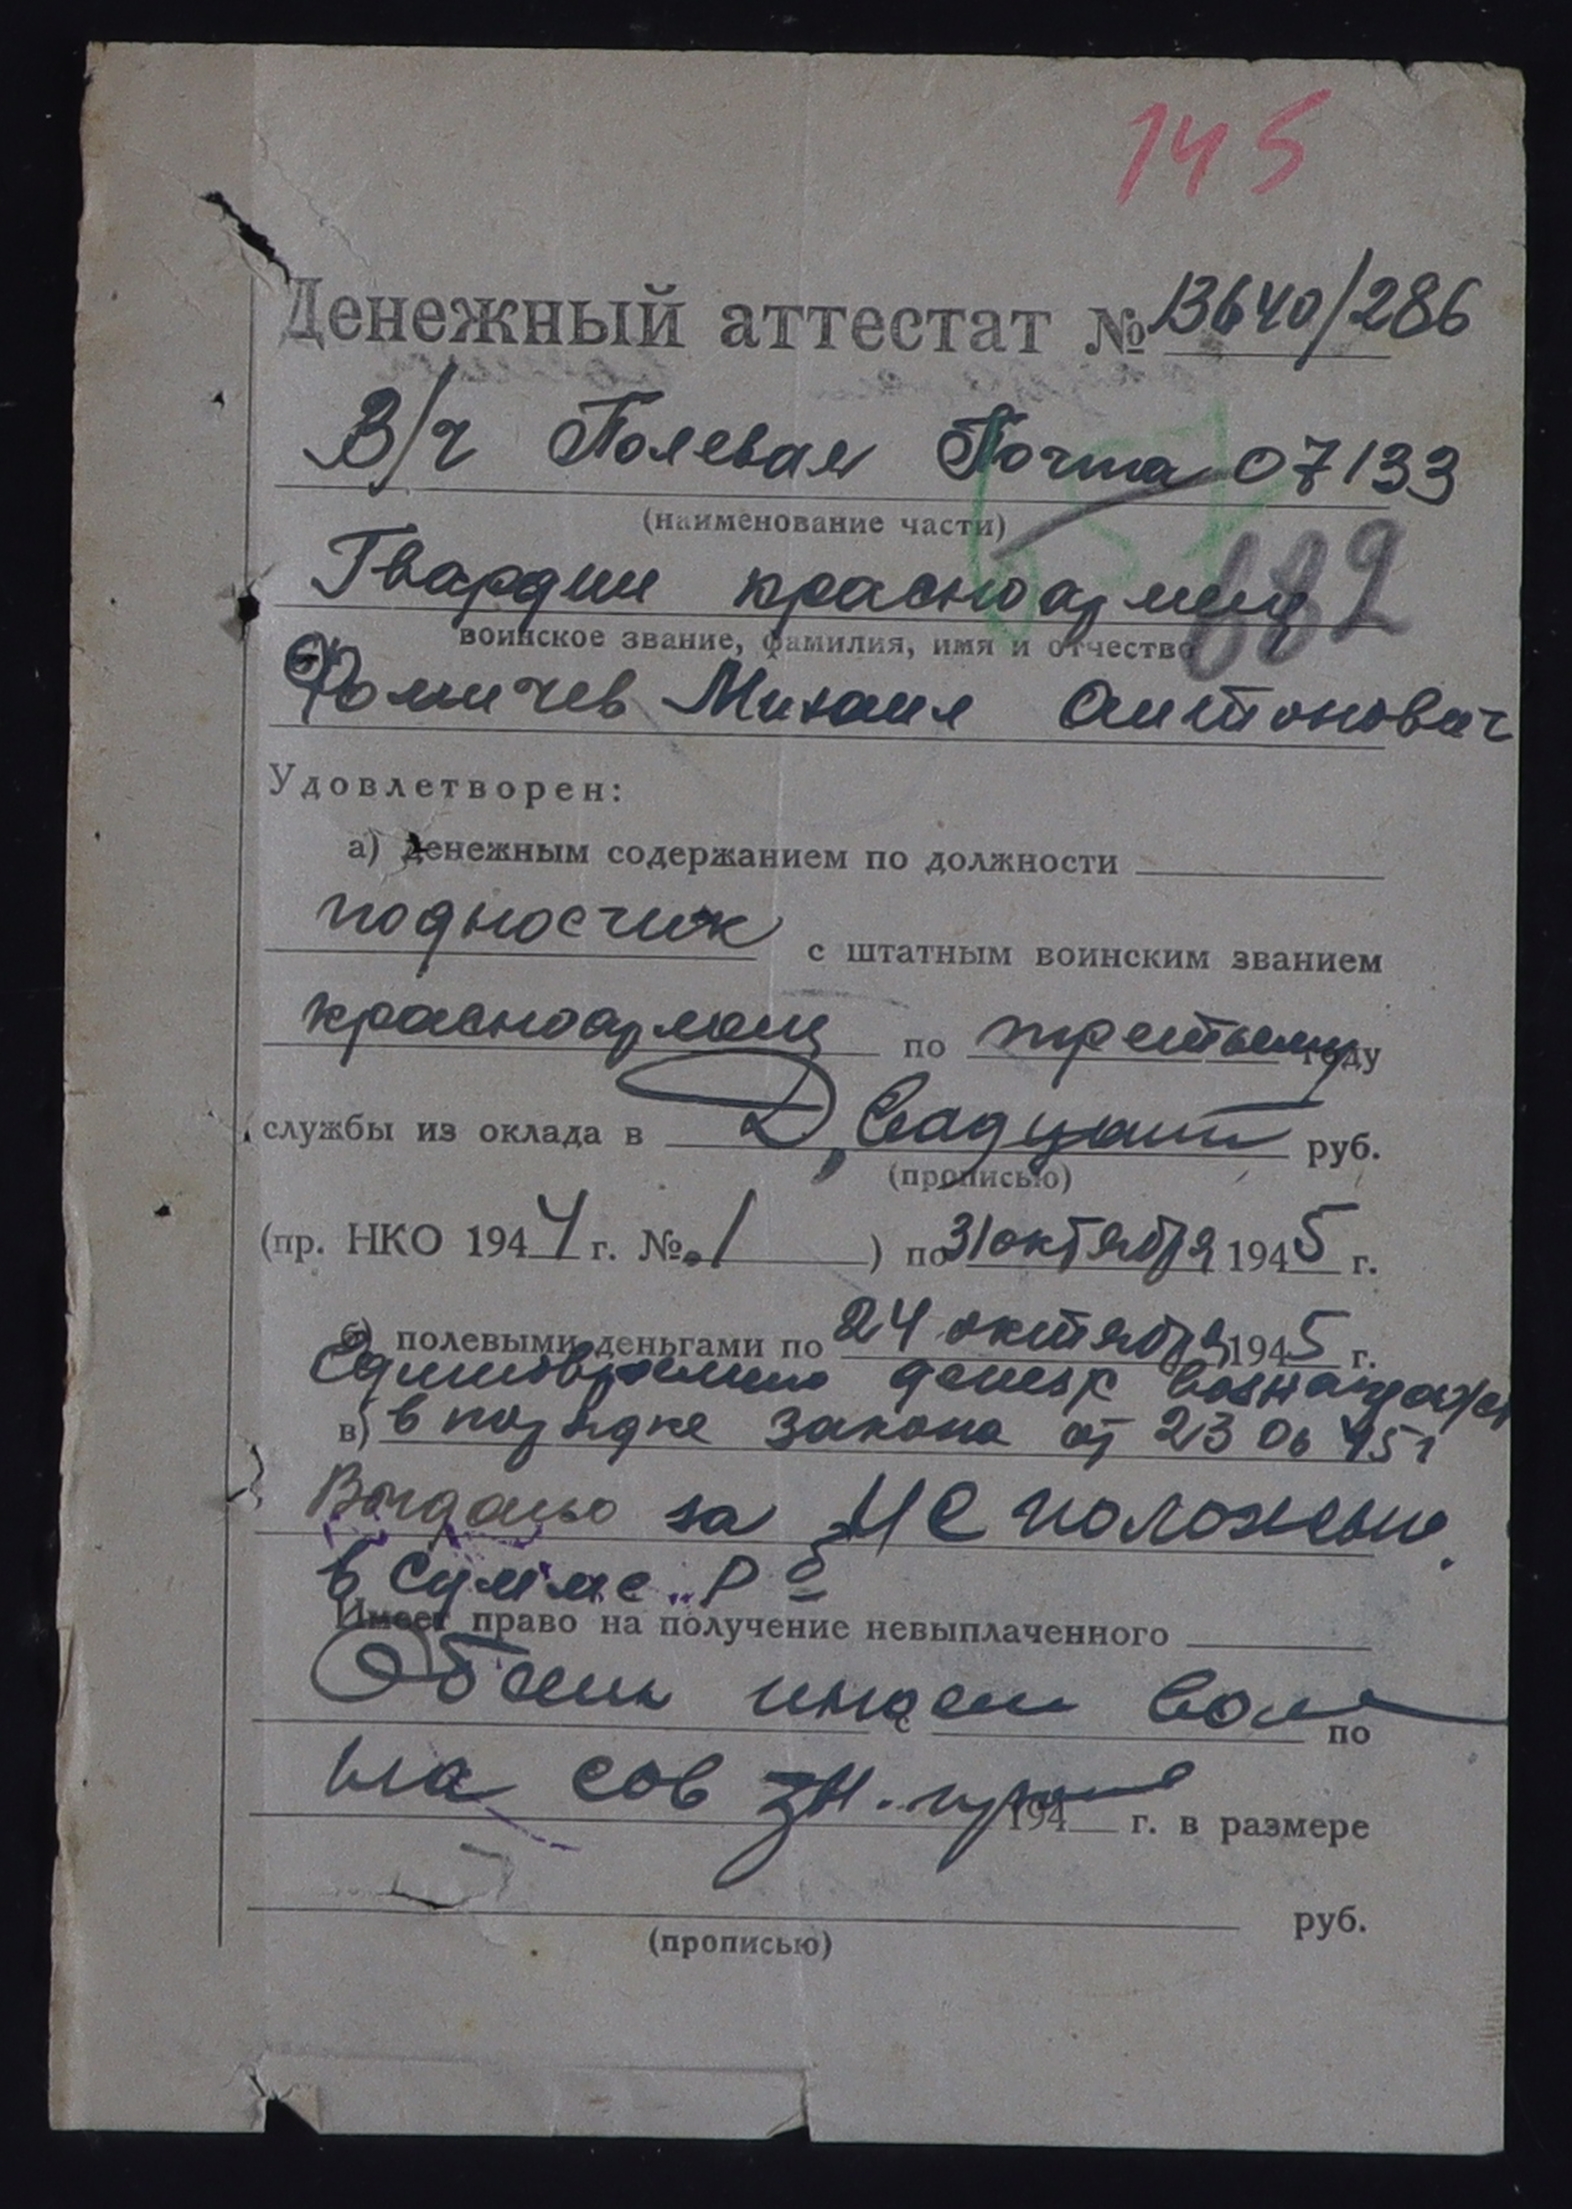 145
Денежный аттестат № 13640/286
В/ч Полевая Почта 07133
(наименование части)
Гвардии красноармеец
882
воинское звание, фамилия, имя и отчество
Фомичев Михаил Антонович
Удовлетворен:
а) денежным содержанием по должности
подносчик с штатным воинским званием
красноармеец по третьему году
службы из оклада в Двадцать руб.
(прописью)
(пр. НКО 1944 г. № 1 ) по 31 октября 1945 г.
б) полевыми деньгами по 24 октября 1945 г.
Единовремено денеж вознагражден
в) в порядке закона от 23 06 45 г
Выдано за Не положено.
в сумме Р
Имеет право на получение невыплаченного
Обмен по
на сов зн. 194 г. в размере
руб.
(прописью)